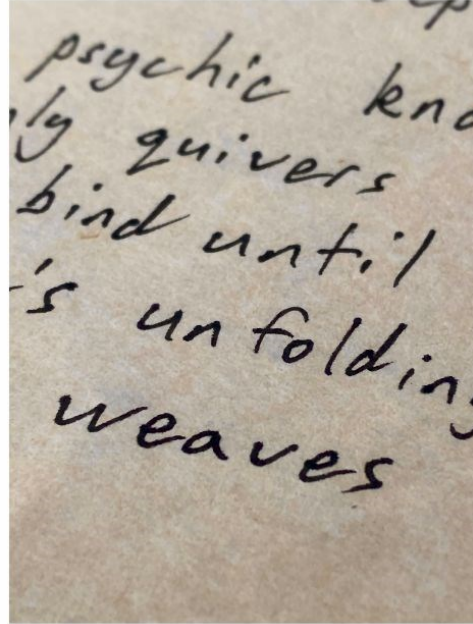 psychic
quivers
bind until
's unfolding
weaves